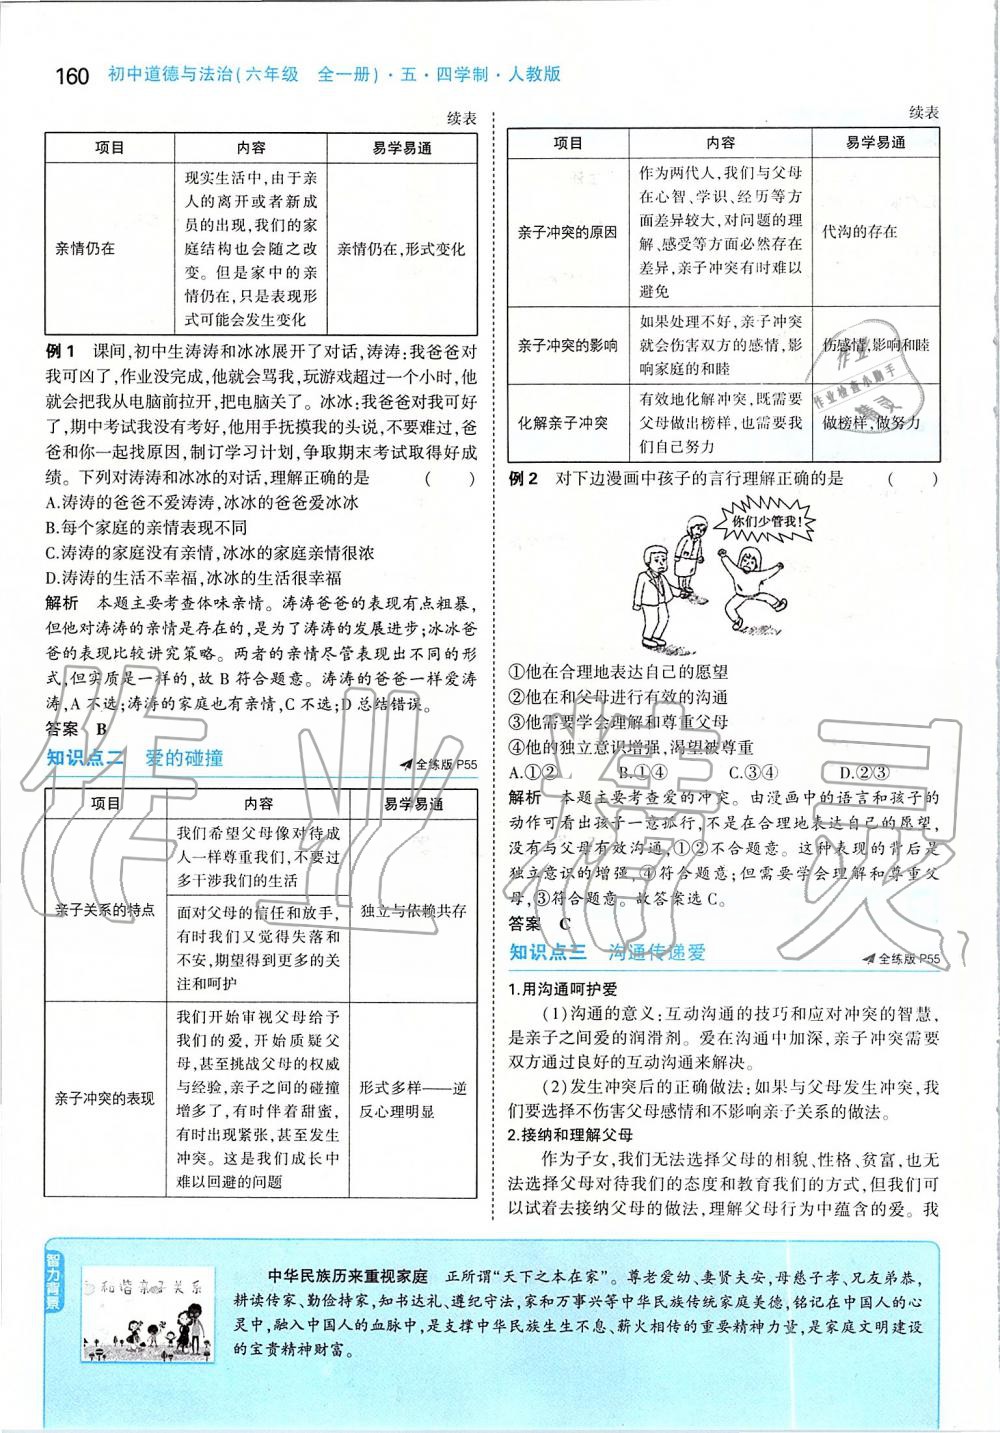 160 初中道德与法治(六年级 全一册)·五·四学制·人教版
续表
项目 内容 易学易通
亲情仍在
现实生活中,由于亲
人的离开或者新成
员的出现,我们的家
庭结构也会随之改
变。但是家中的亲
情仍在,只是表现形
式可能会发生变化
亲情仍在,形式变化
例1 课间,初中生涛涛和冰冰展开了对话,涛涛:我爸爸对
我可凶了,作业没完成,他就会骂我,玩游戏超过一个小时,他
就会把我从电脑前拉开,把电脑关了。冰冰:我爸爸对我可好
了,期中考试我没有考好,他用手抚摸我的头说,不要难过,爸
爸和你一起找原因,制订学习计划,争取期末考试取得好成
绩。下列对涛涛和冰冰的对话,理解正确的是 ( )
A.涛涛的爸爸不爱涛涛,冰冰的爸爸爱冰冰
B.每个家庭的亲情表现不同
C.涛涛的家庭没有亲情,冰冰的家庭亲情很浓
D.涛涛的生活不幸福,冰冰的生活很幸福
解析 本题主要考查体味亲情。涛涛爸爸的表现有点粗暴,
但他对涛涛的亲情是存在的,是为了涛涛的发展进步;冰冰爸
爸的表现比较讲究策略。两者的亲情尽管表现出不同的形
式,但实质是一样的,故B符合题意。涛涛的爸爸一样爱涛
涛,A不选;涛涛的家庭也有亲情,C不选;D总结错误。
答案 B
知识点二 爱的碰撞 全练版P55
项目 内容 易学易通
亲子关系的特点
我们希望父母像对待成
人一样尊重我们,不要过
多干涉我们的生活
面对父母的信任和放手,
有时我们又觉得失落和
不安,期望得到更多的关
注和呵护
独立与依赖共存
亲子冲突的表现
我们开始审视父母给予
我们的爱,开始质疑父
母,甚至挑战父母的权威
与经验,亲子之间的碰撞
增多了,有时伴着甜蜜,
有时出现紧张,甚至发生
冲突。这是我们成长中
难以回避的问题
形式多样——逆
反心理明显
续表
项目 内容 易学易通
亲子冲突的原因
作为两代人,我们与父母
在心智、学识、经历等方
面差异较大,对问题的理
解、感受等方面必然存在
差异,亲子冲突有时难以
避免
代沟的存在
亲子冲突的影响
如果处理不好,亲子冲突
就会伤害双方的感情,影
响家庭的和睦
伤感情,影响和睦
化解亲子冲突
有效地化解冲突,既需要
父母做出榜样,也需要我
们自己努力
做榜样,做努力
例2 对下边漫画中孩子的言行理解正确的是 ( )
你们少管我!
①他在合理地表达自己的愿望
②他在和父母进行有效的沟通
③他需要学会理解和尊重父母
④他的独立意识增强,渴望被尊重
A.①② B.①④ C.③④ D.②③
解析 本题主要考查爱的冲突。由漫画中的语言和孩子的
动作可看出孩子一意孤行,不是在合理地表达自己的愿望,
没有与父母有效沟通,①②不合题意。这种表现的背后是
独立意识的增强,④符合题意;但需要学会理解和尊重父
母,③符合题意。故答案选C。
答案 C
知识点三 沟通传递爱 全练版P55
1.用沟通呵护爱
(1)沟通的意义:互动沟通的技巧和应对冲突的智慧,
是亲子之间爱的润滑剂。爱在沟通中加深,亲子冲突需要
双方通过良好的互动沟通来解决。
(2)发生冲突后的正确做法:如果与父母发生冲突,我
们要选择不伤害父母感情和不影响亲子关系的做法。
2.接纳和理解父母
作为子女,我们无法选择父母的相貌、性格、贫富,也无
法选择父母对待我们的态度和教育我们的方式,但我们可
以试着去接纳父母的做法,理解父母行为中蕴含的爱。我
智力背景
和谐亲子关系
中华民族历来重视家庭 正所谓“天下之本在家”。尊老爱幼、妻贤夫安,母慈子孝、兄友弟恭,
耕读传家、勤俭持家,知书达礼、遵纪守法,家和万事兴等中华民族传统家庭美德,铭记在中国人的心
灵中,融入中国人的血脉中,是支撑中华民族生生不息、薪火相传的重要精神力量,是家庭文明建设
的宝贵精神财富。
作业精灵
作业
作业检查小助手
精灵